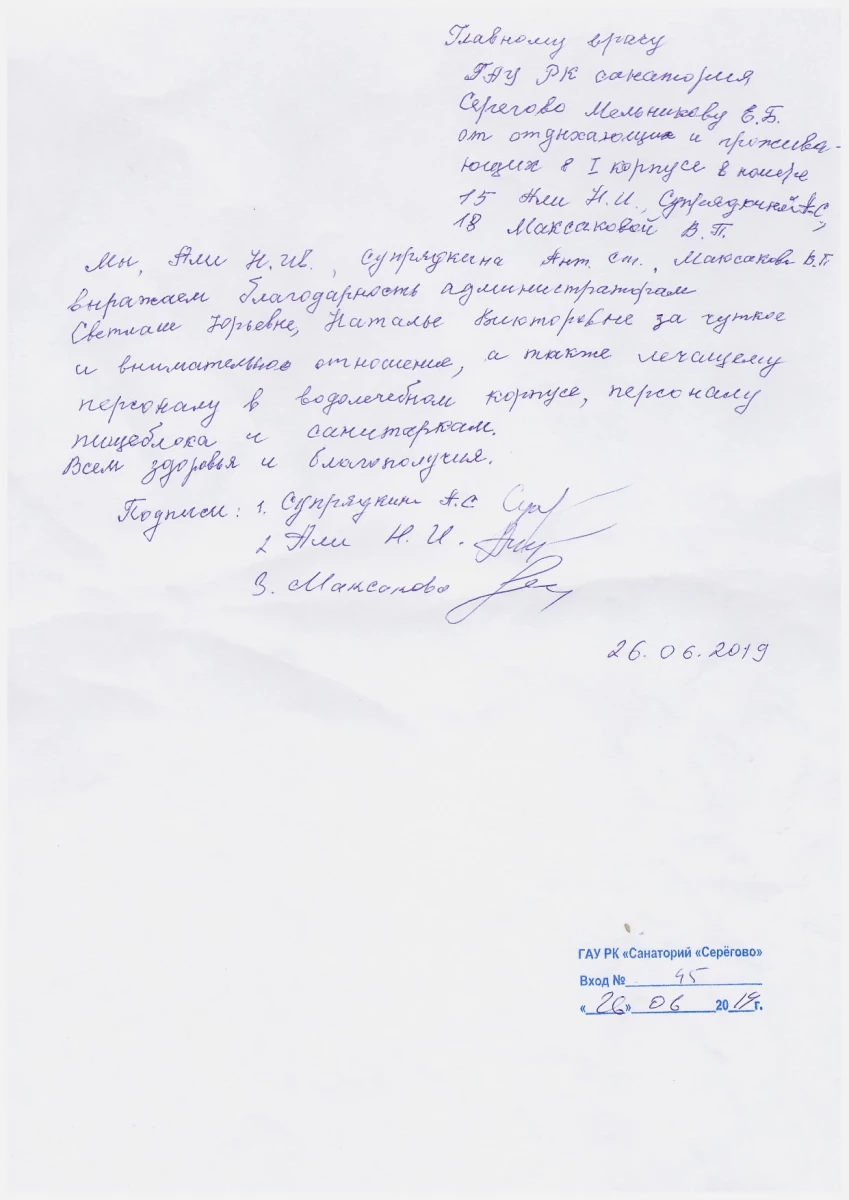 Главному врачу
ГАУ РК санатория
Серегово Мельникову Е.Б.
от отдыхающих и прожива-
ющих в I корпусе в номере
15 Али Н.И., Супрядкиной А.С.,
18 Максаковой В.П.
Мы, Али Н.Ив., Супрядкина Ант. Ст., Максакова В.П.
выражаем благодарность администраторам
Светлане Юрьевне, Наталье Викторовне за чуткое
и внимательное отношение, а также лечащему
персоналу в водолечебном корпусе, персоналу
пищеблока и санитаркам.
Всем здоровья и благополучия.
Подписи: 1. Супрядкина А.С
2 Али Н. И.
3. Максакова
26.06.2019
ГАУ РК «Санаторий «Серёгово»
Вход № 45
«26» 06 2019г.